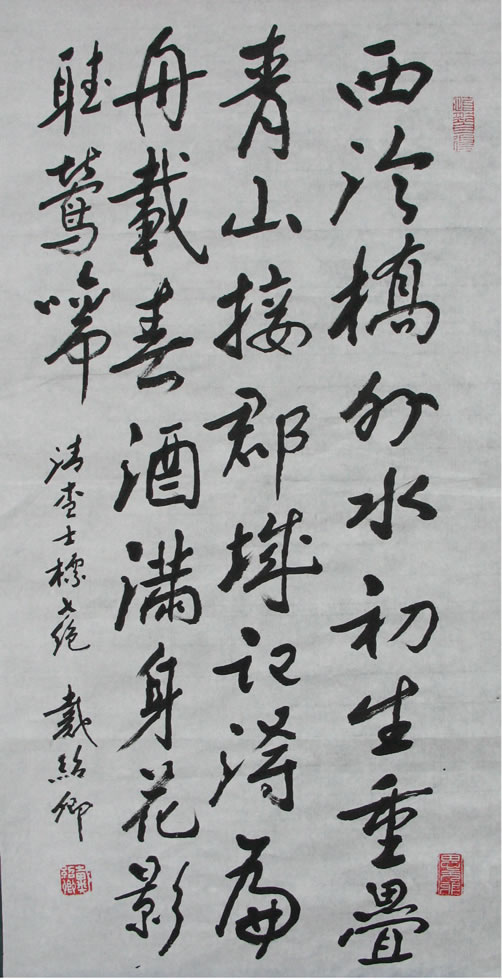 西泠橋外水初生重疊
青山接郡城記得扁
舟載春酒滿身花影
聽鶯啼 清查士標七絕 戴紹卿